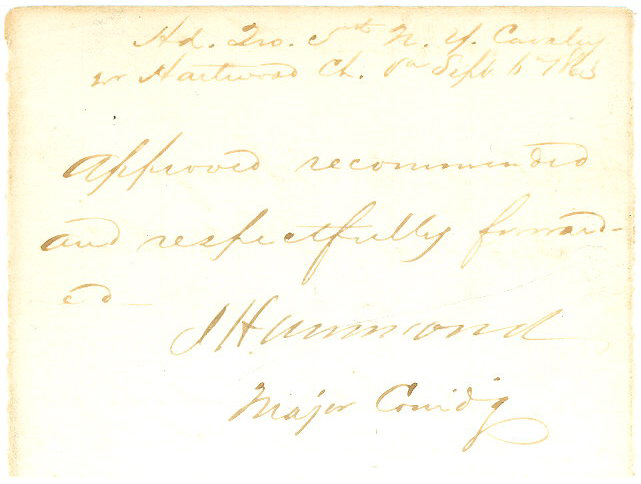 Hd. Qrs. 5th N. Y. Cavalry
nr Hartwood Ch. Va Sept 1863
Approved recommended
and respectfully forward-
ed -
J Hammond
Major Comd'g